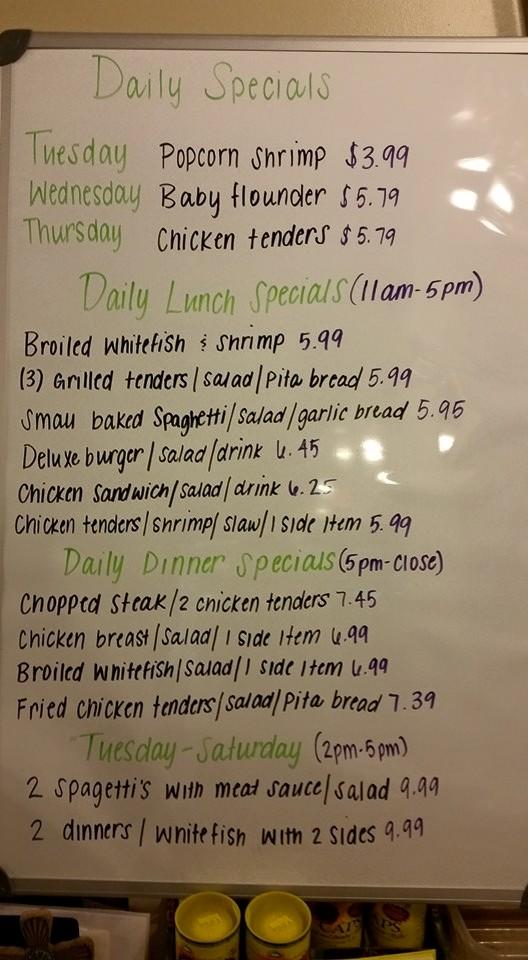 Daily Specials
Tuesday Popcorn shrimp $3.99
Wednesday Baby flounder $5.79
Thursday Chicken tenders $5.79
Daily Lunch Specials (11am-5pm)
Broiled whitefish & shrimp 5.99
(3) Grilled tenders/salad/pita bread 5.99
Small baked Spaghetti/salad/garlic bread 5.95
Deluxe burger/salad/drink 6.45
Chicken Sandwich/salad/drink 6.25
Chicken tenders/shrimp/slaw/1 side item 5.99
Daily Dinner Specials (5pm-close)
Chopped steak/2 chicken tenders 7.45
Chicken breast/salad/1 side item 6.99
Broiled whitefish/salad/1 side item 6.99
Fried chicken tenders/salad/Pita bread 7.39
Tuesday-Saturday (2pm-5pm)
2 Spagetti's with meat sauce/salad 9.99
2 dinners/whitefish with 2 sides 9.99